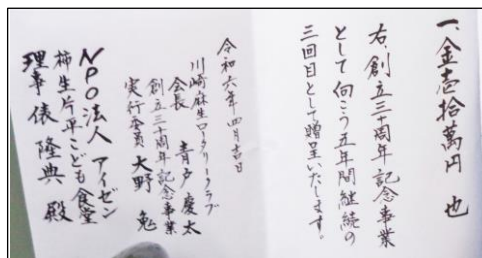 一、金壱拾萬円 也
右、創立三十周年記念事業
として向こう五年間継続の
三回目として贈呈いたします。
令和六年四月吉日
川崎麻生ロータリークラブ
会長 青戸慶太
創立三十周年記念事業
実行委員 大野 勉
NPO法人 アイゼン
柿生片平こども食堂
理事 俵 隆典 殿